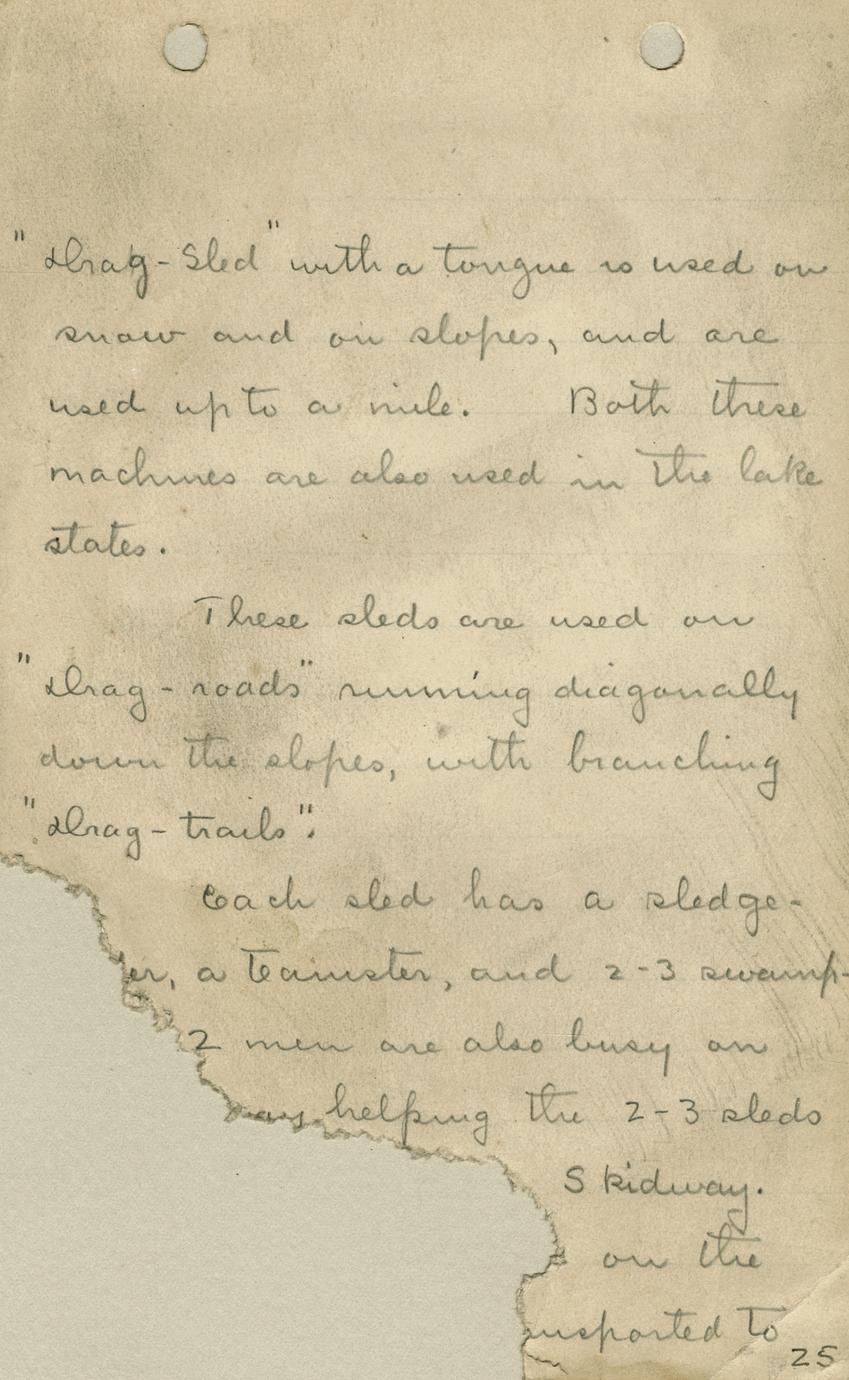 "Drag-Sled" with a tongue is used on
snow and on slopes, and are
used up to a mile. Both these
machines are also used in the lake
states.
These sleds are used on
"Drag-roads" running diagonally
down the slopes, with branching
"Drag-trails".
Each sled has a sledge-
er, a teamster, and 2-3 swamp-
2 men are also busy on
helping the 2-3 sleds
Skidway.
on the
ansported to
25